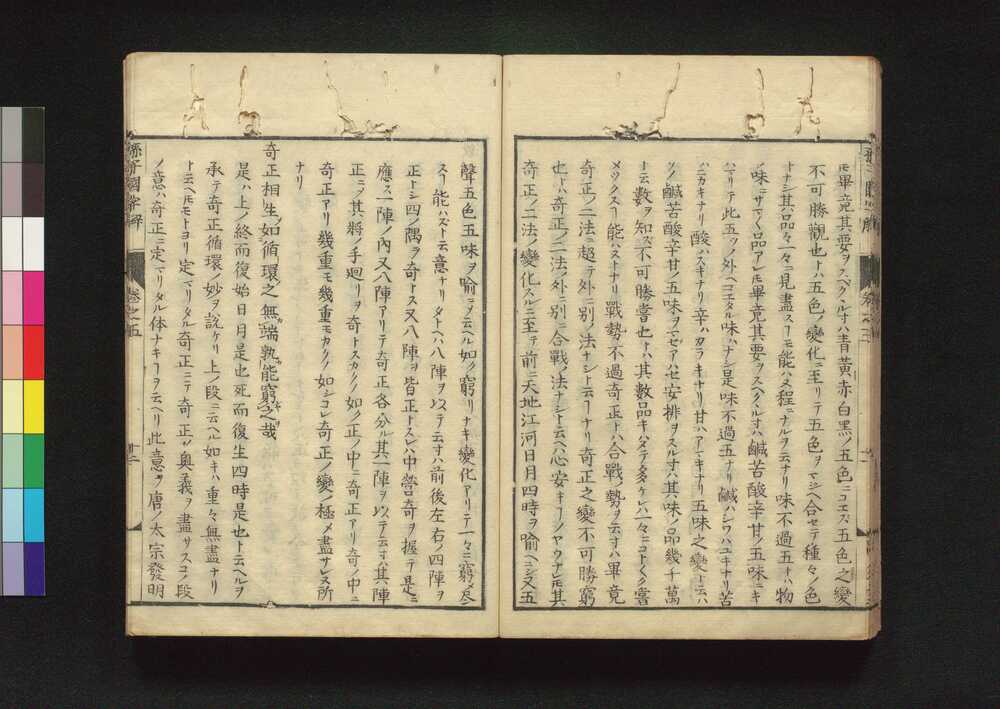 畢竟其要ヲスヘクヽルオハ青黄赤白黒ノ五色ニコエス五色之變
不可勝觀也トハ五色ノ變化ニ至リテ五色ヲマジヘ合セテ種々ノ色
トナシ其品々一々ニ見盡スコモ能ハヌ程ニナルヲ云ナリ味不過五オハ物
ノ味ザマ〴〵品アレモ畢竟其要ヲスヘクヽルオハ鹹苦酸辛甘ノ五味ニキ
ハマリテ此五ツノ外ヘコエタル味ハナシ是味不過五ナリ鹹ハシワハユキナリ苦
ハニカキナリ酸ハスキナリ辛ハカラキナリ甘ハアマキナリ五味之變トハ
鹹苦酸辛甘ノ五味ヲマゼアハセ安排ヲスルオハ其味ノ品幾千萬
ト云數ヲ知ズ不可勝嘗也トハ其數品キハメテ多ケレハ一々ニコトコトク嘗
メツクスコ能ハストナリ戰勢不過奇正トハ合戰ノ勢ヲ云オハ畢竟
奇正ノ二法ニ超テ外ニ別ノ法ナシト云コナリ奇正之變不可勝窮
也トハ奇正ノ二法ノ外ニ別ニ合戰ノ法ナシト云ヘハ心安キコノヤウナレモ其
奇正ノ二法ノ變化スルニ至テ前ニ天地江河日月四時ヲ喩ヘニシ又五
聲五色五味ヲ喩ニメ云ヘル如ク窮リナキ變化アリテ一々ニ窮メ尽
スコ能ハズト云意ナリタトヘハ八陣ヲ以テ云オハ前後左右ノ四陣ヲ
正トシ四ノ隅ヲ奇トス又八陣ヲ皆正トスレハ中營奇ヲ握テ是ニ
應ス一陣ノ内又八陣アリテ奇正各分ル其一陣ヲ以テ云オハ其陣
正ニメ其將ノ手廻リヲ奇トスカクノ如ク正ノ中ニ奇正アリ奇ノ中ニ
奇正アリ幾重モ幾重モカクノ如シコレ奇正ノ變ノ極メ盡サレヌ所
ナリ
奇正相生如循環之無端孰能窮之哉
是ハ上ノ終而復始日月是也死而復生四時是也ト云ヘルヲ
承テ奇正循環ノ妙ヲ說ケリ上ノ段ニ云ヘル如キハ重々無盡ナリ
ト云ヘモモトヨリ定マリタル奇正ニテ奇正ノ奥義ヲ盡サスコノ段
ノ意ハ奇正ニ定マリタル体ナキコヲ云ヘリ此意ヲ唐ノ太宗發明
孫子國字解
卷之五
十二